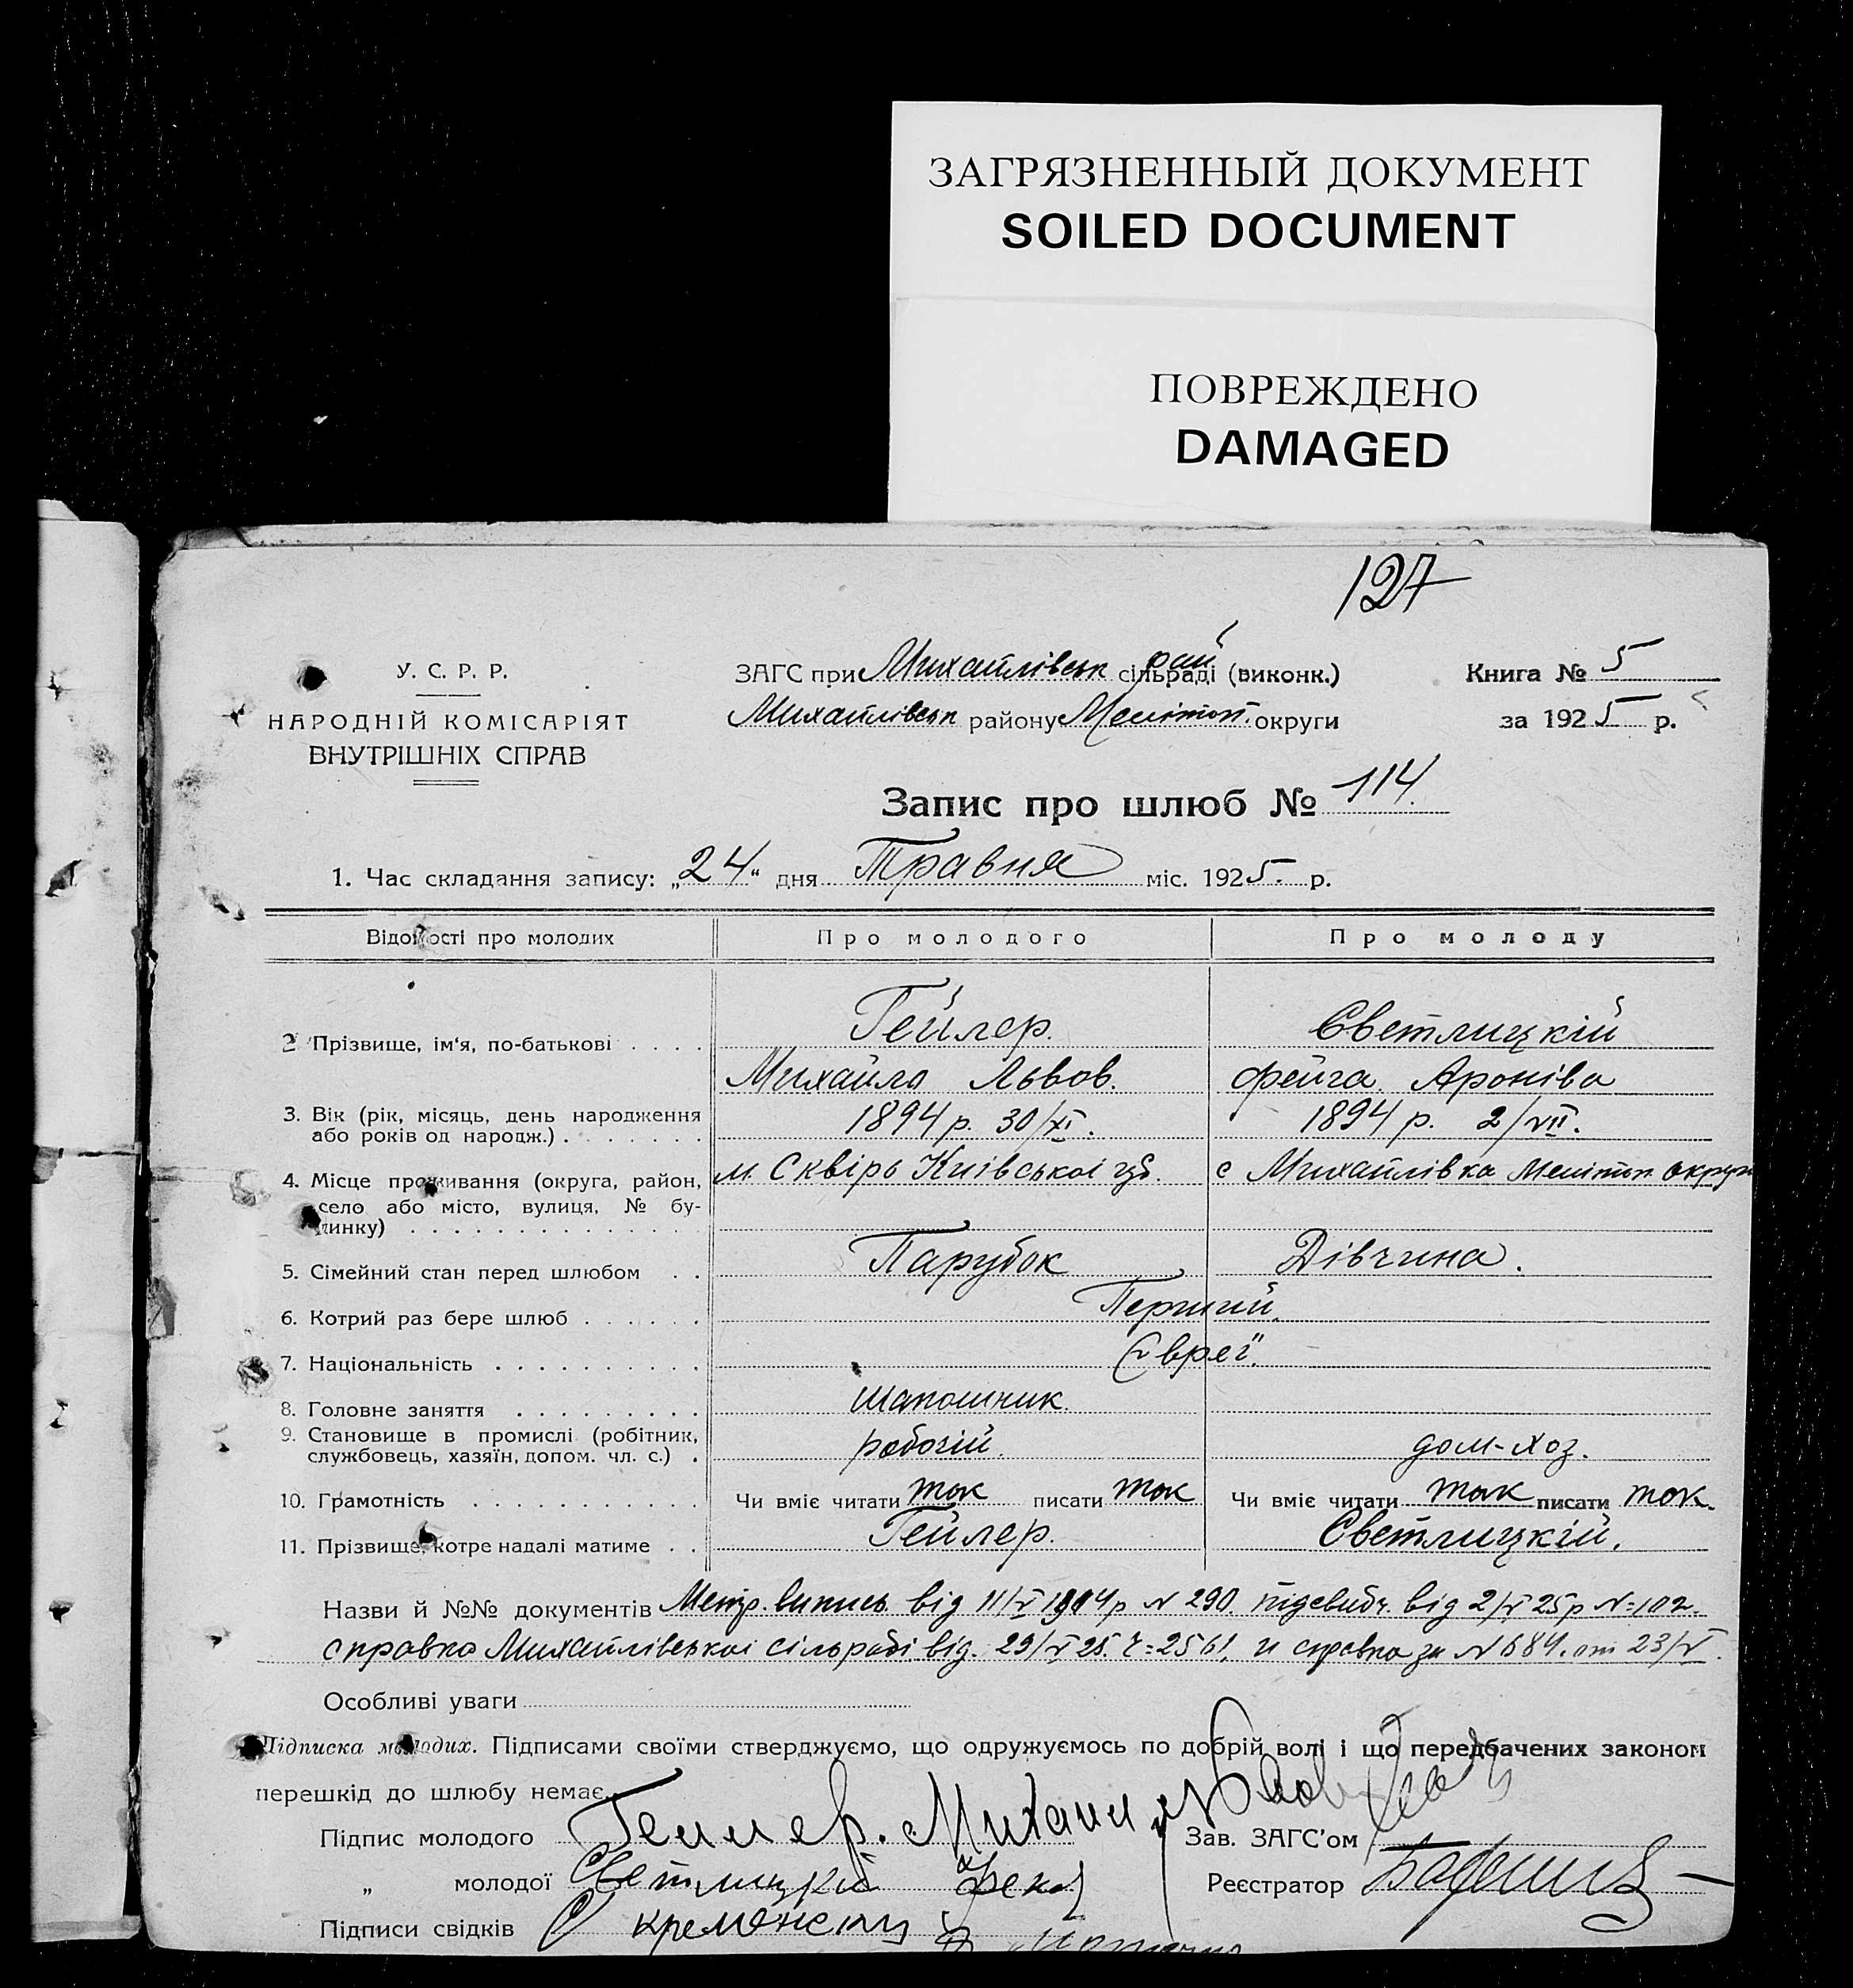 ЗАГРЯЗНЕННЫЙ ДОКУМЕНТ
SOILED DOCUMENT
ПОВРЕЖДЕНО
DAMAGED
127
У. С. Р. Р.
НАРОДНІЙ КОМІСАРІЯТ
ВНУТРІШНІХ СПРАВ
ЗАГС при Михайлівськ рай сільраді (виконк.)
Михайлівськ району Меліто​п. округи
Книга № 5
за 1925 р.
Запис про шлюб № 114.
1. Час складання запису: „24“ дня Травня міс. 1925. р.
Відомості про молодих Про молодого Про молоду
2 Прізвище, ім‘я, по-батькові Гейлер. Светлицкій
Михайло Львов. Фейга Аронівa
3. Вік (рік, місяць, день народження 1894 р. 30/XI. 1894 р. 2/VII.
або років од народж.)
4. Місце проживання (округа, район, м. Сквірь Київської губ. с Михайлівка Меліто​п. округи
село або місто, вулиця, № бу-
динку)
5. Сімейний стан перед шлюбом Парубок Дівчина.
6. Котрий раз бере шлюб Перший.
7. Національність Євреї.
8. Головне заняття шапошник.
9. Становище в промислі (робітник, робочій. дом-хоз.
службовець, хазяїн, допом. чл. с.)
10. Грамотність Чи вміє читати так писати так Чи вміє читати так писати так.
11. Прізвище, котре надалі матиме Гейлер. Светлицкій.
Назви й №№ документів Метр. випись від 11/V 1914 р N 290. від 2/V 25 р N=102.
справка Михайлівської сільради від. 23/V 25. Ч=2561, и справка за N 684. от 23/V.
Особливі уваги
Підписка молодих. Підписами своїми стверджуємо, що одружуємось по добрій волі і що передбачених законом
перешкід до шлюбу немає.
Підпис молодого Гейлер. Михаил Зав. ЗАГС’ом
„ молодої Светлицкій Реєстратор
Підписи свідків